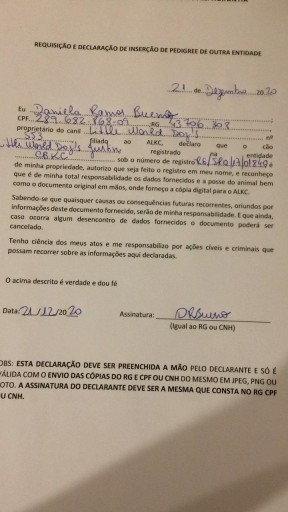 REQUISIÇÃO E DECLARAÇÃO DE INSERÇÃO DE PEDIGREE DE OUTRA ENTIDADE
21 de Dezembro 2020
Eu Daniela Ramos Bueno
CPF 289 682 868-09 RG 43706 808
proprietário do canil Little World Dog's nº
553 filiado ao ALKC, declaro que o cão
Little World Dog's Justin registrado na entidade
CBKC sob o número de registro
de minha propriedade, autorizo que seja feito o registro em meu nome, e reconheço
que é de minha total responsabilidade os dados fornecidos e a posse do animal bem
como o documento original em mãos, onde forneço a cópia digital para o ALKC.
Sabendo-se que quaisquer causas ou consequências futuras recorrentes, oriundos por
informações deste documento fornecido, serão de minha responsabilidade. E que ainda,
caso ocorra algum desencontro de dados fornecidos o documento poderá ser
cancelado.
Tenho ciência dos meus atos e me responsabilizo por ações cíveis e criminais que
possam recorrer sobre as informações aqui declaradas.
O acima descrito é verdade e dou fé
Data: 21/12/2020 Assinatura: DRBueno
(Igual ao RG ou CNH)
OBS: ESTA DECLARAÇÃO DEVE SER PREENCHIDA A MÃO PELO DECLARANTE E SÓ É
VÁLIDA COM O ENVIO DAS CÓPIAS DO RG E CPF OU CNH DO MESMO EM JPEG, PNG OU
FOTO. A ASSINATURA DO DECLARANTE DEVE SER A MESMA QUE CONSTA NO RG CPF
OU CNH.